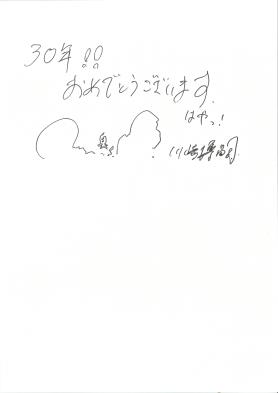 30年!!
おめでとうございます
はやっ!
川崎博嗣